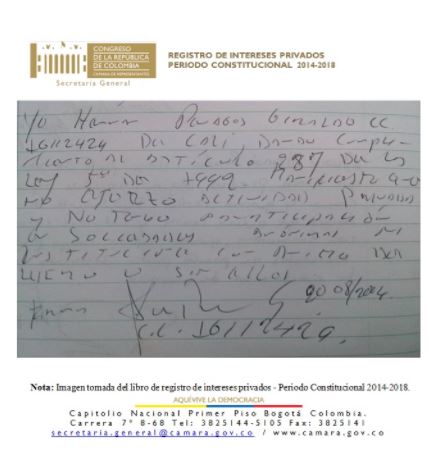 CONGRESO
DE LA REPÚBLICA
DE COLOMBIA
CÁMARA DE REPRESENTANTES
Secretaría General
REGISTRO DE INTERESES PRIVADOS
PERIODO CONSTITUCIONAL 2014-2018
Yo Giraldo CC.
16112424 De Cali, Dando Cumpli-
miento Al Artículo 287 De la
Ley 5ta De 1992 Manifiesto que
no ejerzo actividades Privadas
y No Tengo participación
en Sociedades
20 08/2014.
C.C. 16112424.
Nota: Imagen tomada del libro de registro de intereses privados - Periodo Constitucional 2014-2018.
AQUÍVIVE LA DEMOCRACIA
Capitolio Nacional Primer Piso Bogotá Colombia.
Carrera 7º 8-68 Tel: 3825144-5105 Fax: 3825141
secretaria.general@camara.gov.co / www.camara.gov.co